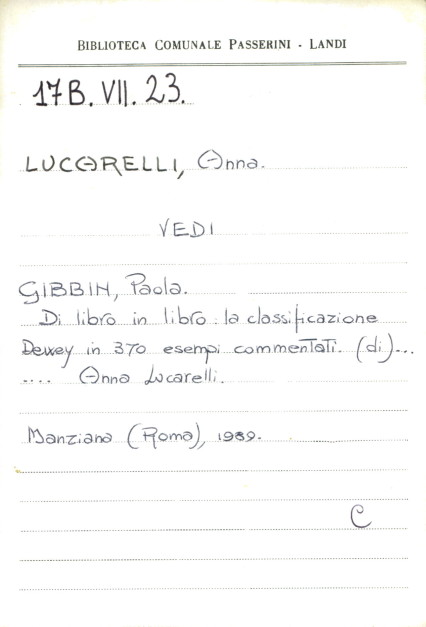 BIBLIOTECA COMUNALE PASSERINI - LANDI
17B. VII. 23.
LUCARELLI, Anna.
VEDI
GIBBIN, Paola.
Di libro in libro : la classificazione
Dewey in 370 esempi commentati. (di)...
.... Anna Lucarelli.
Manziana (Roma), 1989.
C